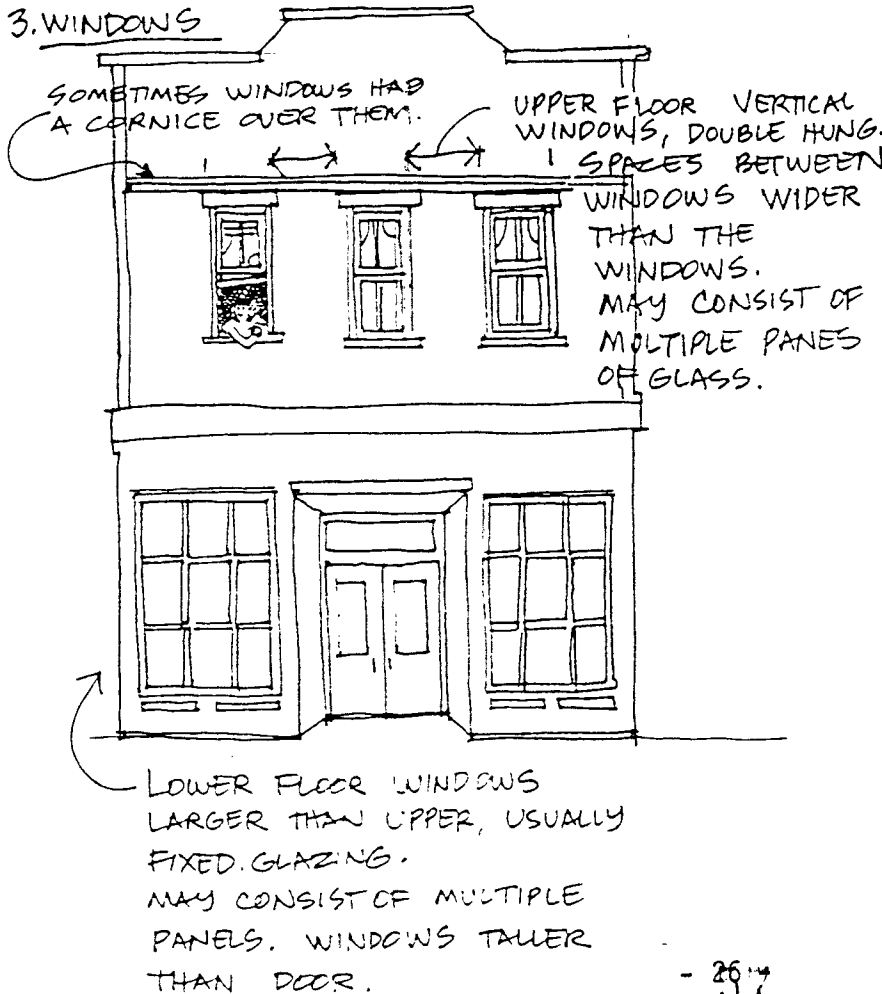 3. WINDOWS
SOMETIMES WINDOWS HAD
A CORNICE OVER THEM.
UPPER FLOOR VERTICAL
WINDOWS, DOUBLE HUNG.
SPACES BETWEEN
WINDOWS WIDER
THAN THE
WINDOWS.
MAY CONSIST OF
MULTIPLE PANES
OF GLASS.
LOWER FLOOR WINDOWS
LARGER THAN UPPER, USUALLY
FIXED GLAZING.
MAY CONSIST OF MULTIPLE
PANELS. WINDOWS TALLER
THAN DOOR.